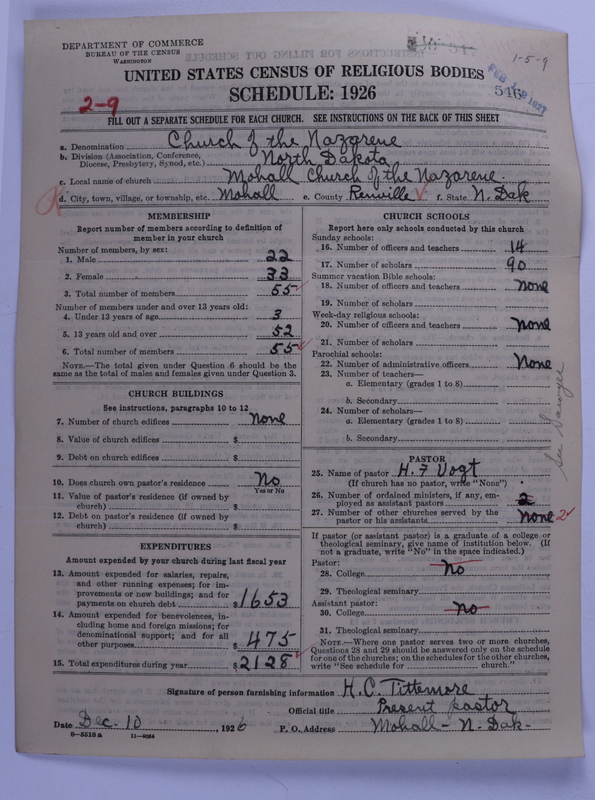 DEPARTMENT OF COMMERCE
BUREAU OF THE CENSUS
WASHINGTON
1-5-9
UNITED STATES CENSUS OF RELIGIOUS BODIES
SCHEDULE: 1926
516
2-9
FILL OUT A SEPARATE SCHEDULE FOR EACH CHURCH. SEE INSTRUCTIONS ON THE BACK OF THIS SHEET
a. Denomination Church of the Nazarene
b. Division (Association, Conference, Diocese, Presbytery, Synod, etc.) North Dakota
c. Local name of church Mohall Church of the Nazarene.
d. City, town, village, or township, etc. Mohall e. County Renville f. State N. Dak
MEMBERSHIP
Report number of members according to definition of member in your church
Number of members, by sex:
1. Male 22
2. Female 33
3. Total number of members 55
Number of members under and over 13 years old:
4. Under 13 years of age 3
5. 13 years old and over 52
6. Total number of members 55
NOTE.—The total given under Question 6 should be the same as the total of males and females given under Question 3.
CHURCH BUILDINGS
See instructions, paragraphs 10 to 12
7. Number of church edifices none
8. Value of church edifices $
9. Debt on church edifices $
10. Does church own pastor's residence No
Yes or No
11. Value of pastor's residence (if owned by church) $
12. Debt on pastor's residence (if owned by church) $
EXPENDITURES
Amount expended by your church during last fiscal year
13. Amount expended for salaries, repairs, and other running expenses; for improvements or new buildings; and for payments on church debt $ 1653
14. Amount expended for benevolences, including home and foreign missions; for denominational support; and for all other purposes $ 475
15. Total expenditures during year $ 2128
CHURCH SCHOOLS
Report here only schools conducted by this church
Sunday schools:
16. Number of officers and teachers 14
17. Number of scholars 90
Summer vacation Bible schools:
18. Number of officers and teachers none
19. Number of scholars
Week-day religious schools:
20. Number of officers and teachers none
21. Number of scholars
Parochial schools:
22. Number of administrative officers None
23. Number of teachers—
a. Elementary (grades 1 to 8)
b. Secondary
24. Number of scholars—
a. Elementary (grades 1 to 8)
b. Secondary
PASTOR
25. Name of pastor H. F Vogt
(If church has no pastor, write "None")
26. Number of ordained ministers, if any, employed as assistant pastors 2
27. Number of other churches served by the pastor or his assistants None 2
If pastor (or assistant pastor) is a graduate of a college or theological seminary, give name of institution below. (If not a graduate, write "No" in the space indicated.)
Pastor:
28. College No
29. Theological seminary
Assistant pastor:
30. College No
31. Theological seminary
NOTE.—Where one pastor serves two or more churches, Questions 28 and 29 should be answered only on the schedule for one of the churches; on the schedules for the other churches, write "See schedule for church."
Signature of person furnishing information H. C. Tittemore
Official title Present pastor
Date Dec. 10, 1926 P. O. Address Mohall - N. Dak-
8-5518 a 11-9054